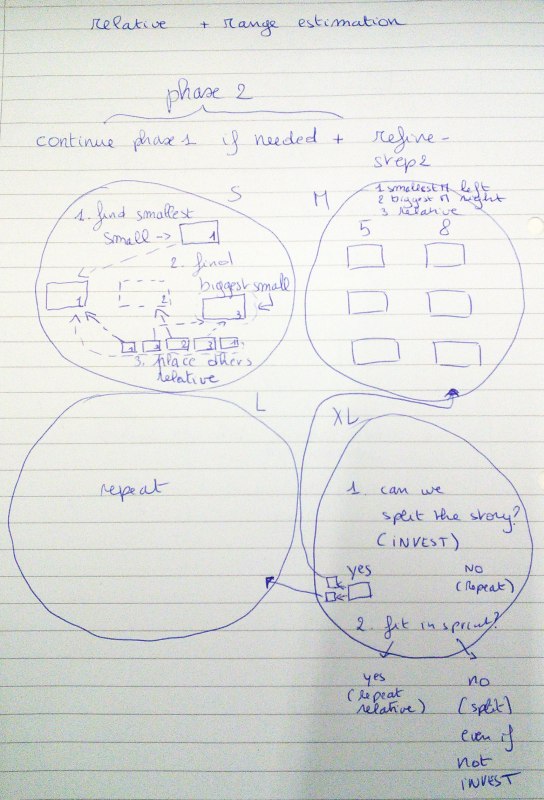 relative + range estimation
phase 2
continue phase 1 if needed + refine-
step 2
S
1. find smallest
small -> 1
2. find
biggest small
1 2 3
1 1 2 3 1
3. place others
relative
M
1 smallest M left
2 biggest M right
3 relative
5 8
L
repeat
XL
1. can we
split the story?
(INVEST)
yes NO
(repeat)
2. fit in sprint?
yes
(repeat
relative)
no
(split)
even if
not
INVEST